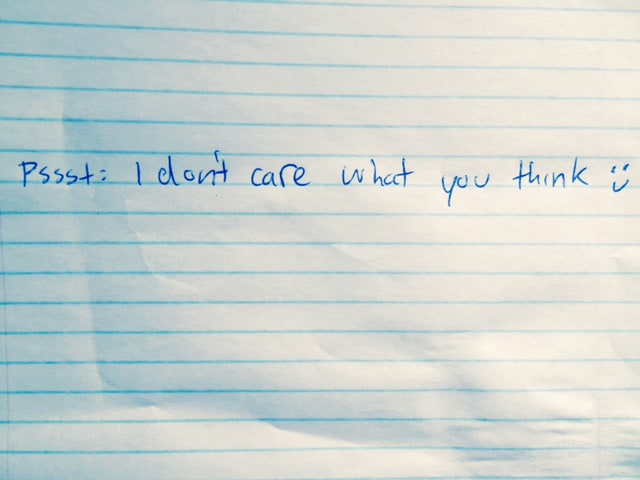 Pssst: I don't care what you think :)